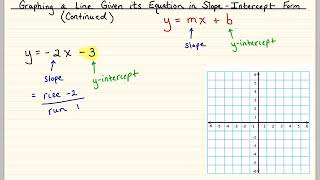 Graphing a Line Given its Equation in Slope-Intercept Form
(Continued)
y = mx + b
slope
y-intercept
y = -2x -3
slope
y-intercept
= rise -2
run 1